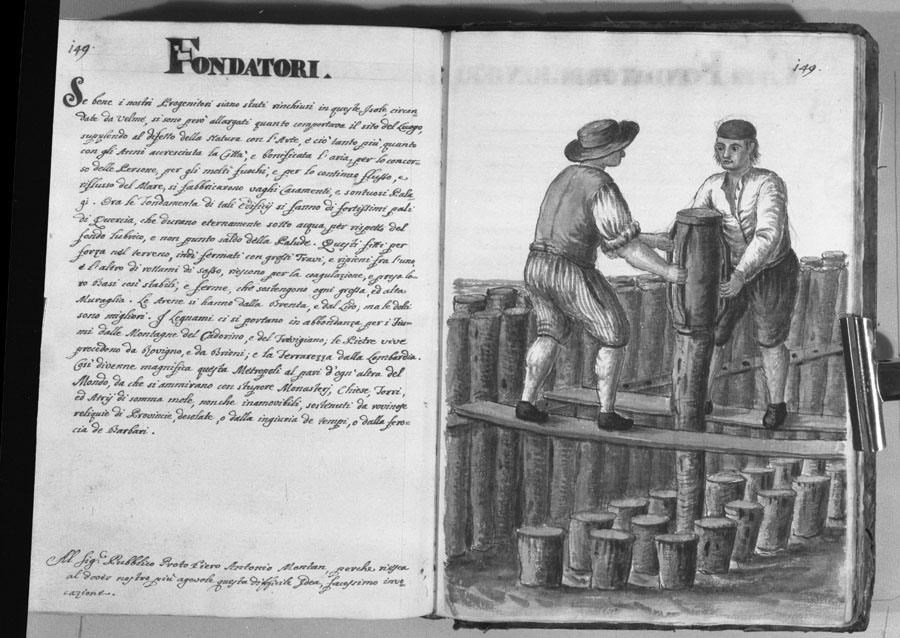 149.
FONDATORI.
Se bene i nostri Progenitori siano stati rinchiusi in queste Isole, circon
date da Velme, si sono però allargati quanto comportava il sito del Luogo,
supplendo al difetto della Natura con l'Arte, e ciò tanto più, quanto
con gli Anni accresciuta la Città, e bonificata l'aria, per lo concor-
so delle Persone, per gli molti fuochi, e per lo continuo flusso, e
riflusso del Mare, si fabbricarono vaghi Casamenti, e sontuosi Pala-
gi. Ora le fondamenta di tali edifizij si fanno di fortissimi pali
di Quercia, che durano eternamente sotto acqua, per rispetto del
fondo lubrico, e non punto saldo della Palude. Questi fitti per
forza nel terreno, indi fermati con grossi Travi, e ripieni fra l'uno,
e l'altro di rottami di Sasso, riescono per la coagulazione, e presa lo-
ro Basi così stabili, e ferme, che sostengono ogni grossa, ed alta
Muraglia. Le Arene si hanno dalla Brenta, e dal Lido; ma le dolci
sono migliori. I Legnami ci si portano in abbondanza per i Fiu-
mi dalle Montagne del Cadorino, e del Trevigiano; le Pietre vive
procedono da Rovigno, e da Brioni; e la Terrarezza dalla Lombardia.
Così divenne magnifica questa Metropoli al pari d'ogn'altra del
Mondo, da che si ammirano con stupore Monasterj, Chiese, Torri,
ed Atrij di somma mole, non che inamovibili, sostenuti da rovinose
reliquie di Provincie desolate, o dalla ingiuria de tempi, o dalla fero-
cia de Barbari.
Al Sigr. Pubblico Proto Piero Antonio Montan, perche riesca
al dover nostro più agevole questa difficile Idea, facessimo invi-
cazione.
149.